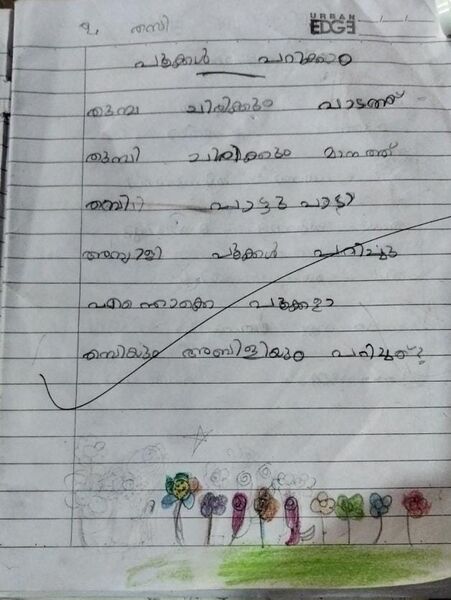 URBAN EDGE
പൂക്കൾ പറിക്കാം
തുമ്പ ചിരിക്കും പാടത്ത്
തുമ്പി ചിരിക്കും മാനത്ത്
തമ്പി പാട്ടു പാടി
അമ്പിളി പൂക്കൾ പറിച്ചു
എന്തൊക്കെ പൂക്കളാ
തമ്പിയും അമ്പിളിയും പറിച്ചത്?